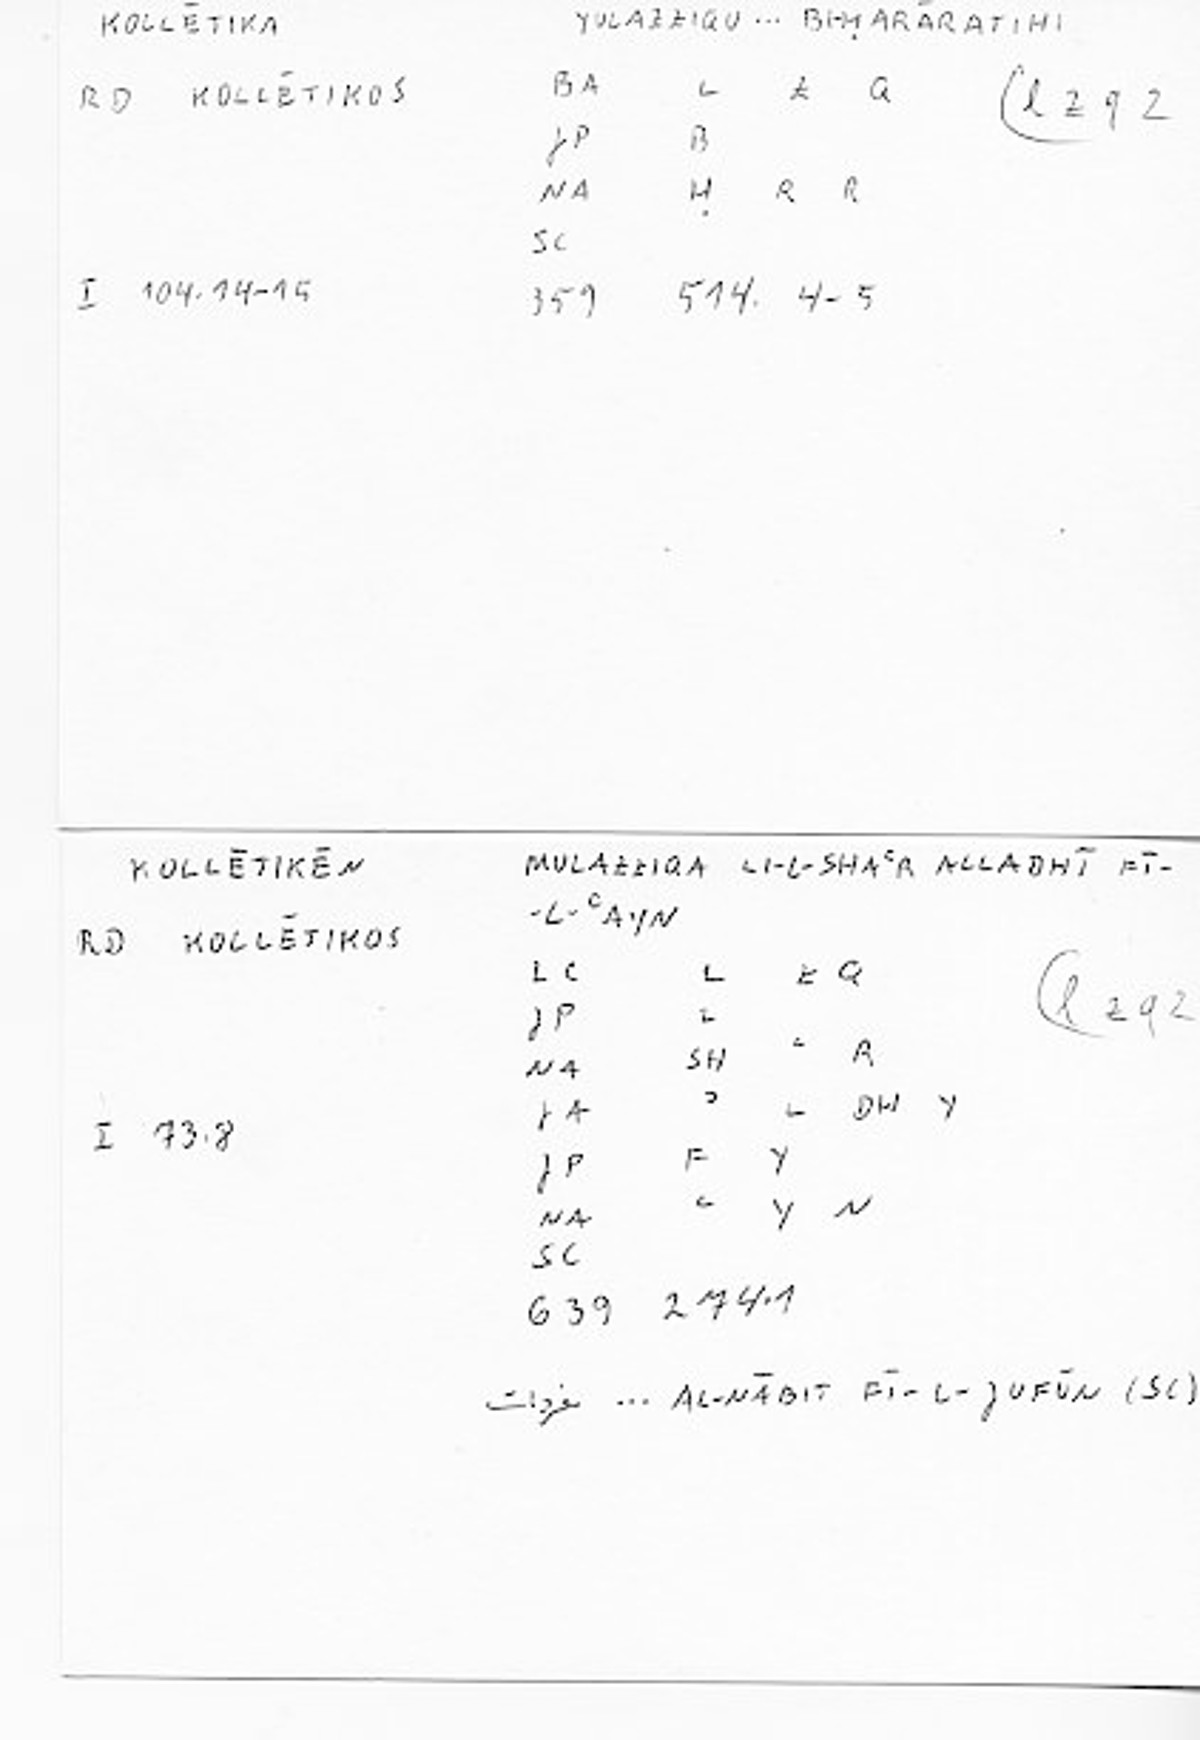 KOLLĒTIKA YULAZZIQU ... BI-ḤARĀRATIHI
RD KOLLĒTIKOS BA L Z Q (lzq2
JP B
NA Ḥ R R
SC
I 104.14-15 359 514. 4-5
KOLLĒTIKĒN MULAZZIQA LI-L-SHAʿR ALLADHĪ FĪ-
-L-ʿAYN
RD KOLLĒTIKOS
LC L Z Q (lzq2
JP L
NA SH ʿ R
JA ʾ L DH Y
I 73.8
JP F Y
NA ʿ Y N
SC
639 274.1
... AL-NĀBIT FĪ-L-JUFŪN (SC)